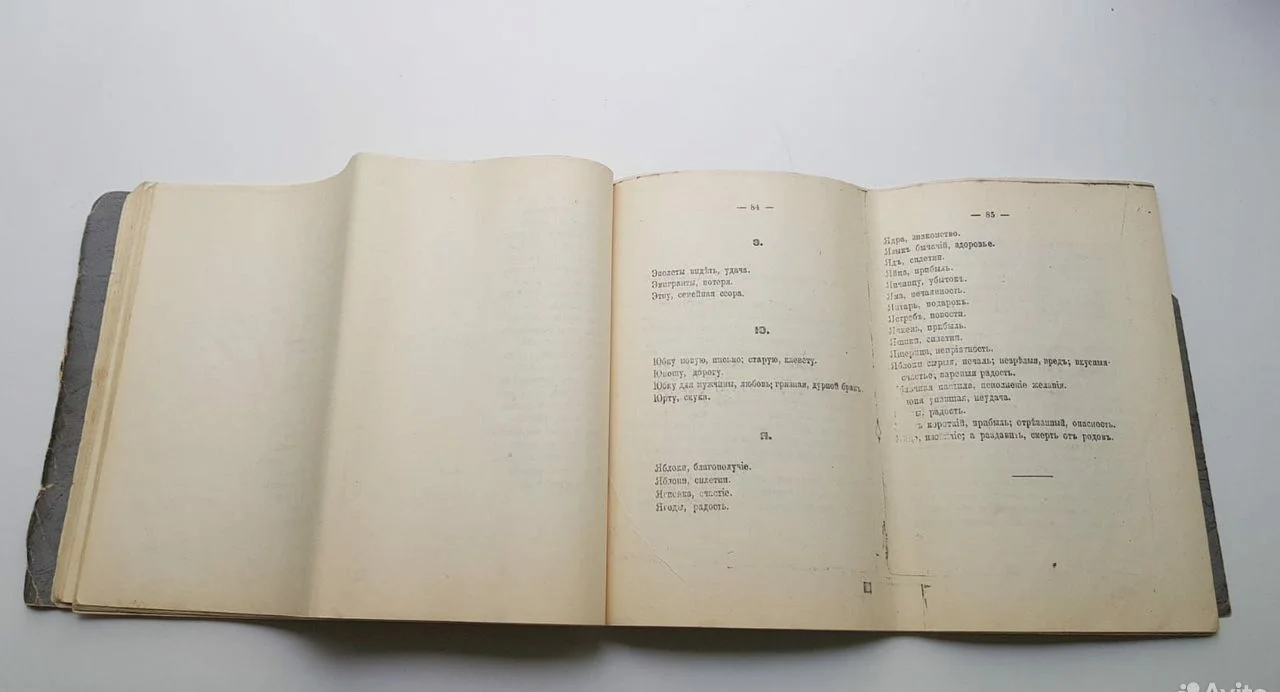 — 84 —
Э.
Эполеты видѣть, удача.
Эмигранты, потеря.
Этну, семейная ссора.
Ю.
Юбку новую, письмо; старую, клевету.
Юношу, дорогу.
Юбку для мужчины, любовь; грязная, дурной бракъ.
Юрту, скука.
Я.
Яблоки, благополучіе.
Яблони, сплетни.
счастіе.
Ягоды, радость.
— 85 —
Ядра, знакомство.
Языкъ бычачій, здоровье.
Ядъ, сплетни.
Яйца, прибыль.
Яичницу, убытокъ.
Яма, нечаянность.
Янтарь, подарокъ.
Ястребъ, новости.
Ячмень, прибыль.
Ящики, сплетни.
Ящерица, непріятность.
Яблоки сырыя, печаль; незрѣлыя, вредъ; вкусныя-
счастье; вареныя радость.
Яблочная пастила, исполненіе желанія.
неудача.
радость.
короткій, прибыль; отрѣзанный, опасность.
а раздавить, смерть отъ родовъ.
Avito